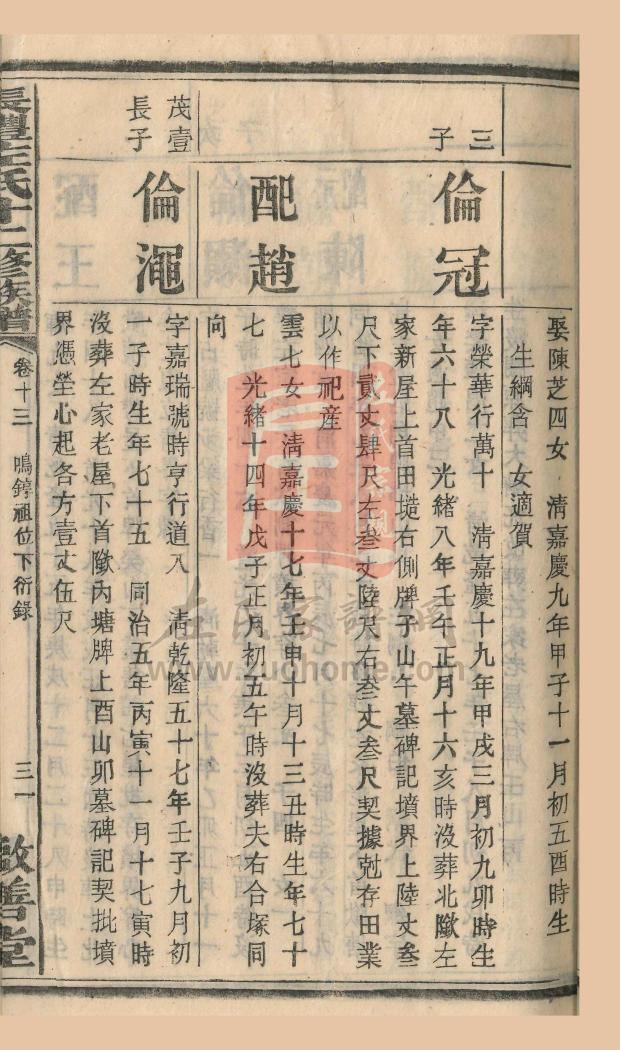 娶陳芝四女　清嘉慶九年甲子十一月初五酉時生
生綱含　女適賀
三子
倫冠
字榮華行萬十　清嘉慶十九年甲戌三月初九卯時生
年六十八　光緒八年壬午正月十六亥時沒葬北歟左
家新屋上首田墈右側牌子山午墓碑記墳界上陸丈叁
尺下貳丈肆尺左叁丈陸尺右叁丈叁尺契據尅存田業
以作祀産
配趙
雲七女　清嘉慶十七年壬申十月十三丑時生年七十
七　光緒十四年戊子正月初五午時沒葬夫右合塚同
向
茂壹長子
倫渑
字嘉瑞號時亨行道入　清乾隆五十七年壬子九月初
一子時生年七十五　同治五年丙寅十一月十七寅時
沒葬左家老屋下首歟內塘牌上酉山卯墓碑記契批墳
界憑塋心起各方壹丈伍尺
長豊左氏十二修族譜
卷十三　鳴錞祖位下衍錄
三一
敦善堂
左氏家譜網
www.zuohome.com